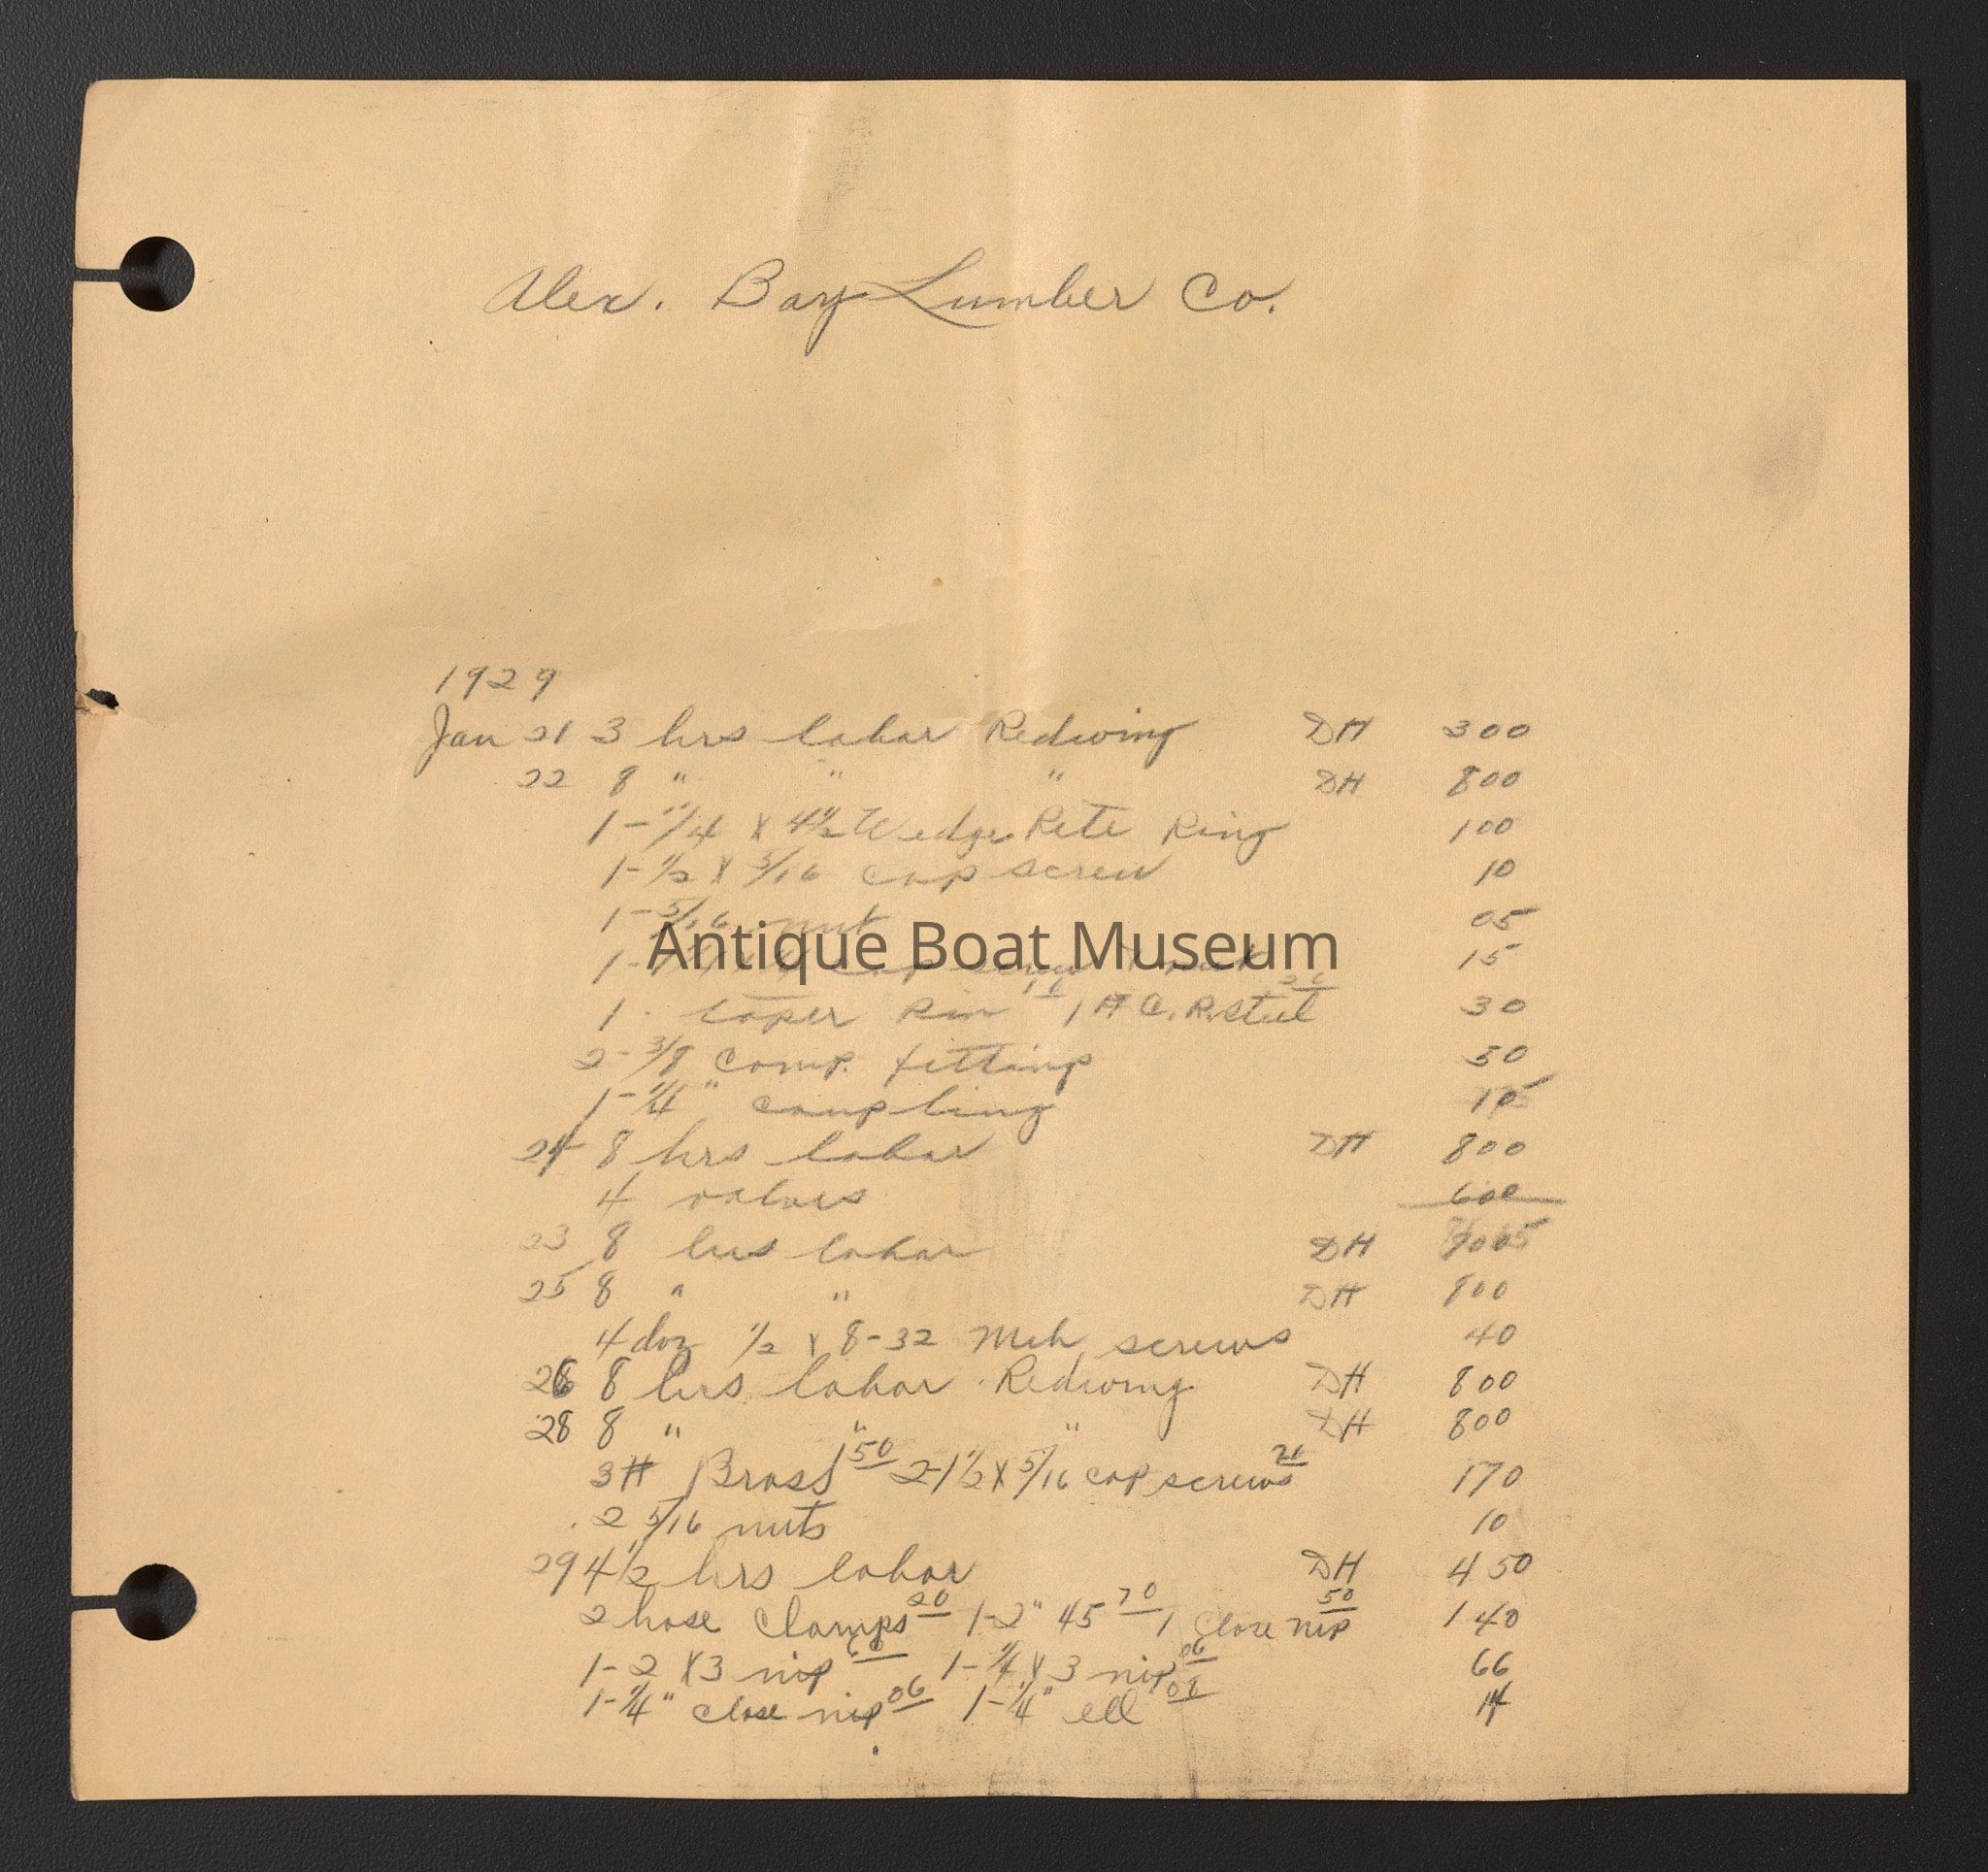 Alex. Bay Lumber Co.
1929
Jan 21 3 hrs labor Redwing DH 300
22 8 " " " DH 800
1-1/4 x 4 1/2 Wedge Rite Ring 100
1-1/2 x 5/16 cap screw 10
1-5/16 nut 05
Antique Boat Museum
1- cap screw + nut 15
1. taper pin 10 1# C.R. steel 20 30
2-3/8 Comp. fitting 50
1-1/4" coupling
24 8 hrs labor DH 800
4 valves 600
23 8 hrs labor DH
25 8 " " DH 800
4 doz 1/2 x 8-32 Mch screws 40
26 8 hrs labor Redwing DH 800
28 8 " " " DH 800
3# Brass 1 50 2-1 1/2 x 5/16 cap screws 20 170
2 5/16 nuts 10
29 4 1/2 hrs labor DH 450
2 hose Clamps 20 1-2" 45 70 1 Close nip 50 140
1-2 x 3 nip 60 1-1/4 x 3 nip 06 66
1-1/4" close nip 06 1-1/4" ell 08 14